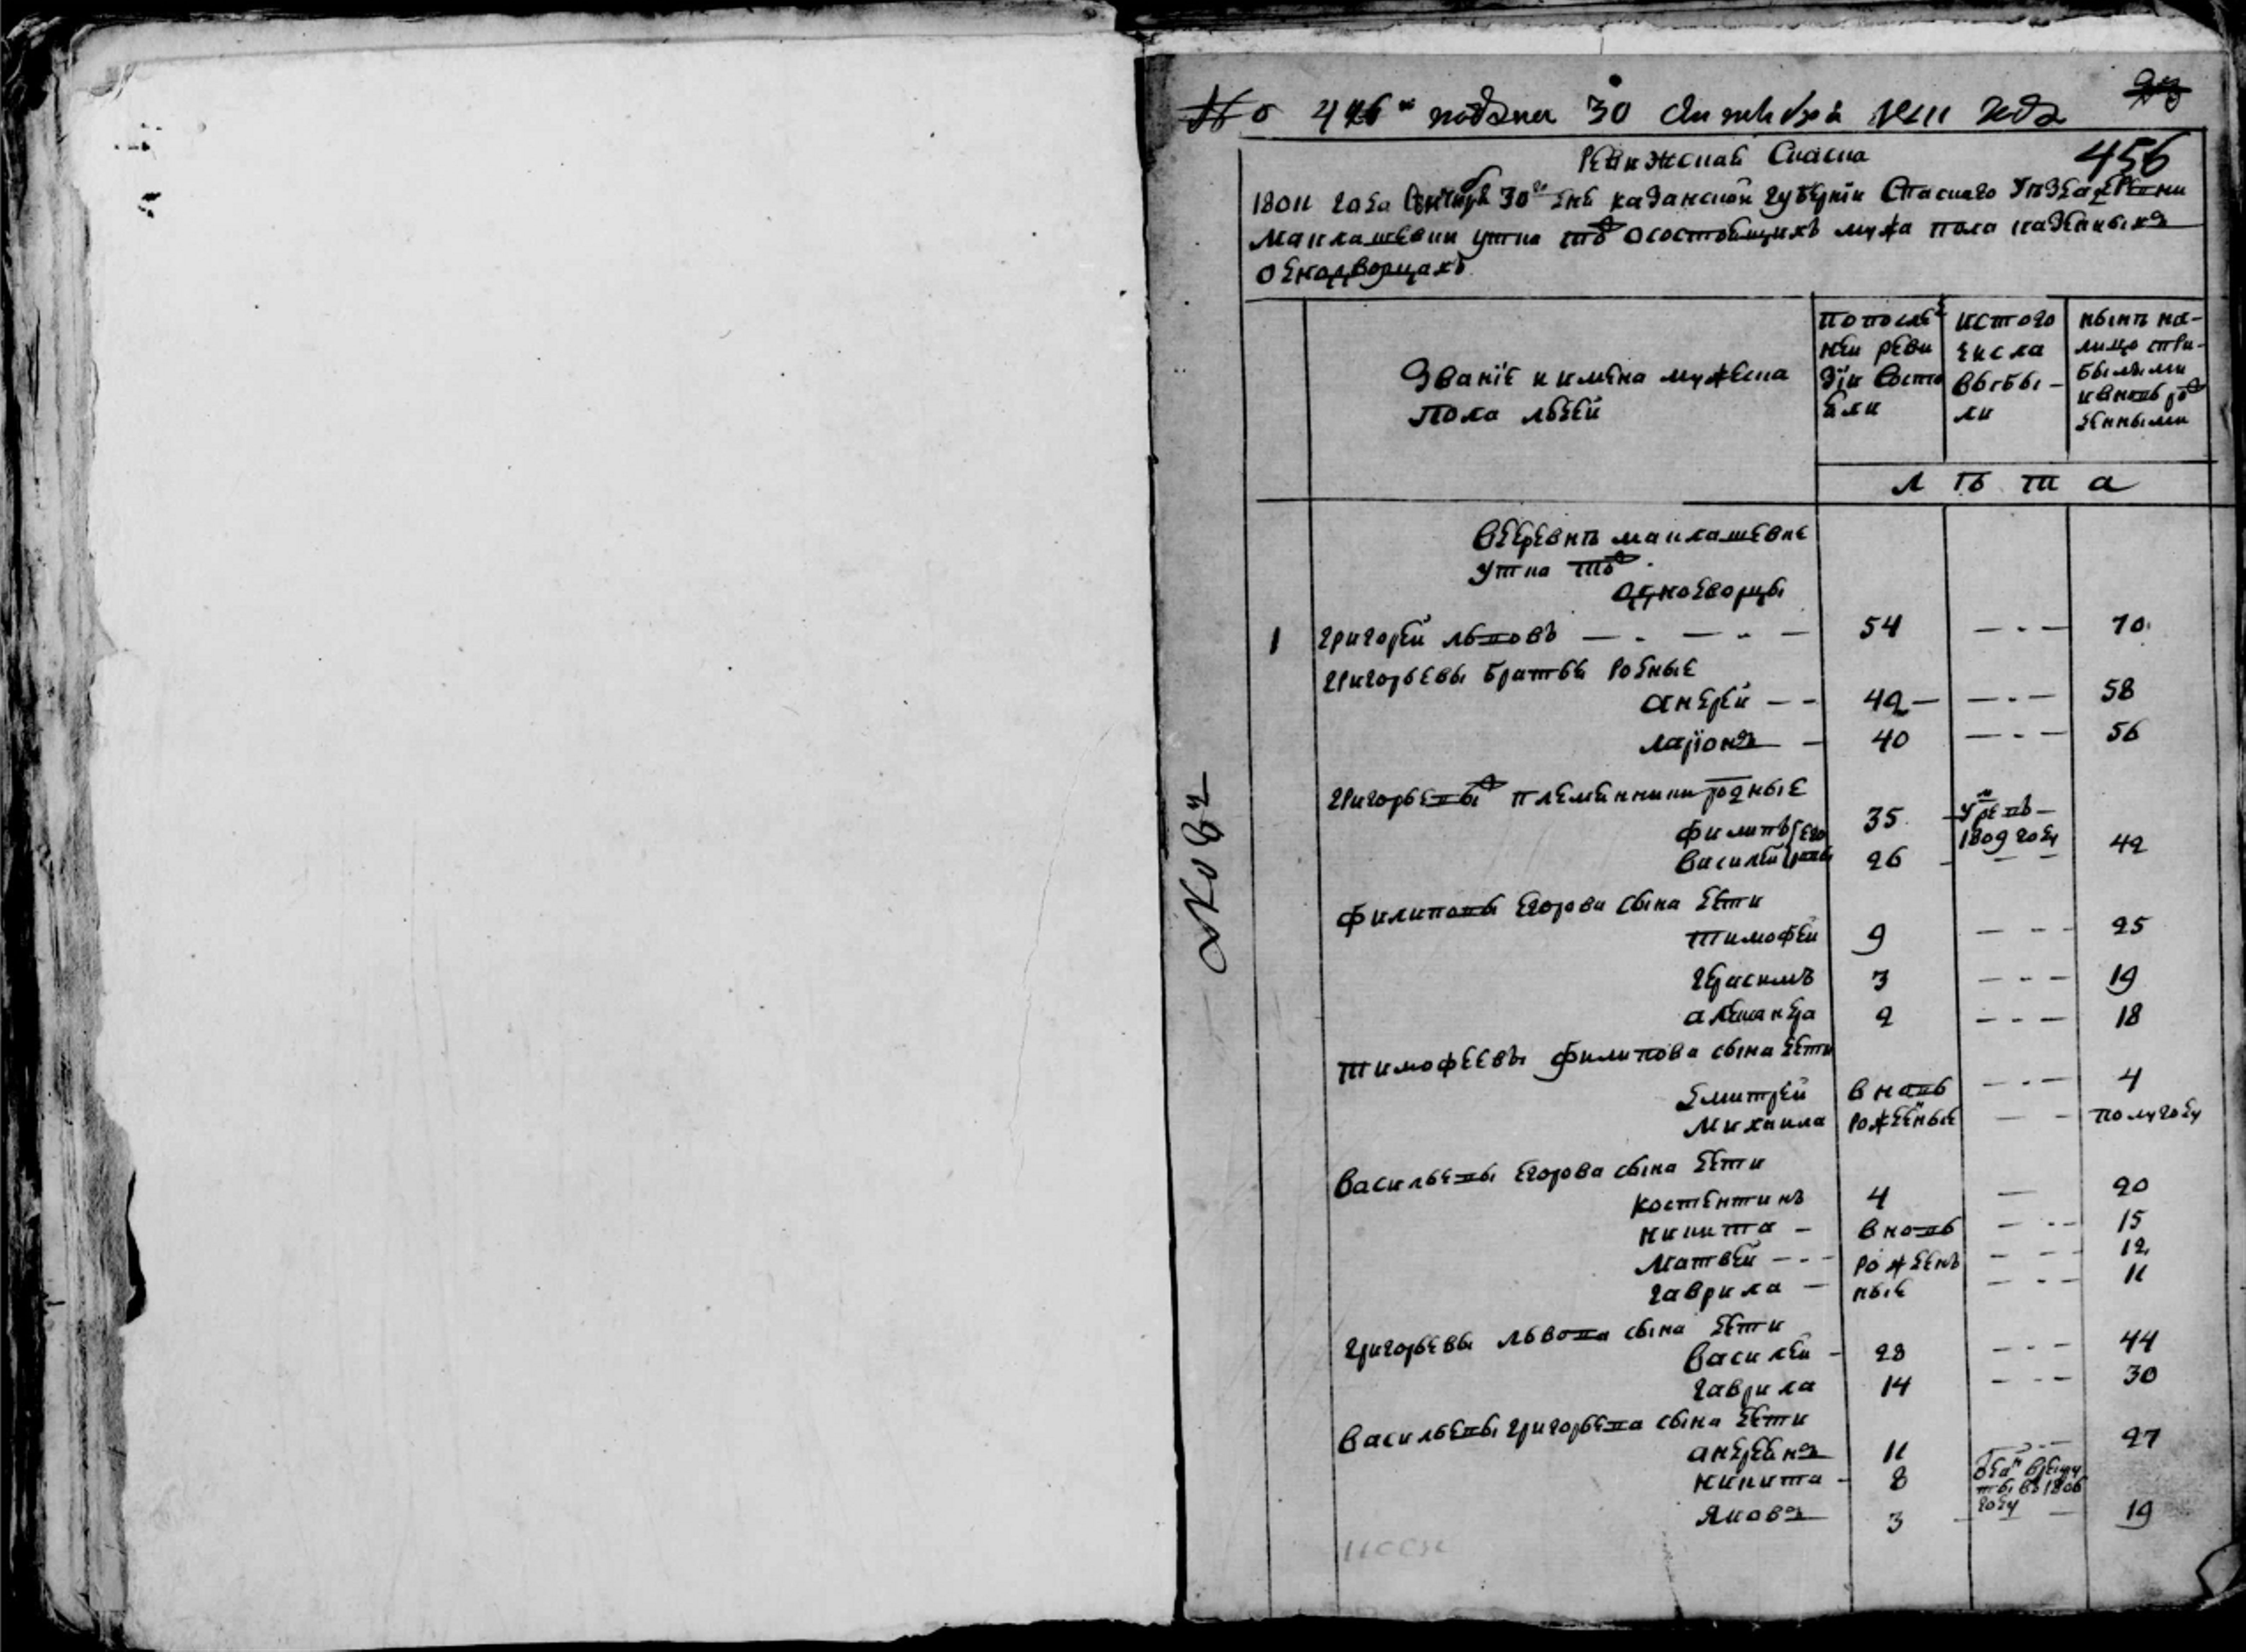 № 446 подана 30 Сентября 1811 года
456
Ревижская Сказка
1811 года Сентября 30го дня казанской губернии Спаскаго Уъзда деревни
Маклашевки утка тож осостоящихъ мужска пола казенныхъ
однодворцахъ
Званïе и имена мужеска
пола людей
по послед
ней реви
зïи состо
яли
ис того
числа
выбы-
ли
нынъ на-
лицо спри-
былыми
ивновь рож
денными
Л Ъ т а
вдеревнъ маклашевке
Утка тож
однодворцы
1 григорей львовъ 54 70
григорьевы братья родные
андрей 42 58
ларïонъ 40 56
григорьевыж племянники родные
филипъ 35 умре въ
1809 году
василей 26 42
филиповы егорова сына дети
тимофей 9 25
герасимъ 3 19
александра 2 18
тимофеевы филипова сына дети
дмитрей вновь 4
Михаила рожденые полугоду
васильевы егорова сына дети
костентинъ 4 20
никита вновь 15
матвей рожденъ 12
гаврила ные 11
григорьевы львова сына дети
василей 28 44
гаврила 14 30
васильевы григорьева сына дети
андреянъ 11 27
никита 8 отдан врекру
ты въ 1806
году
яковъ 3 19